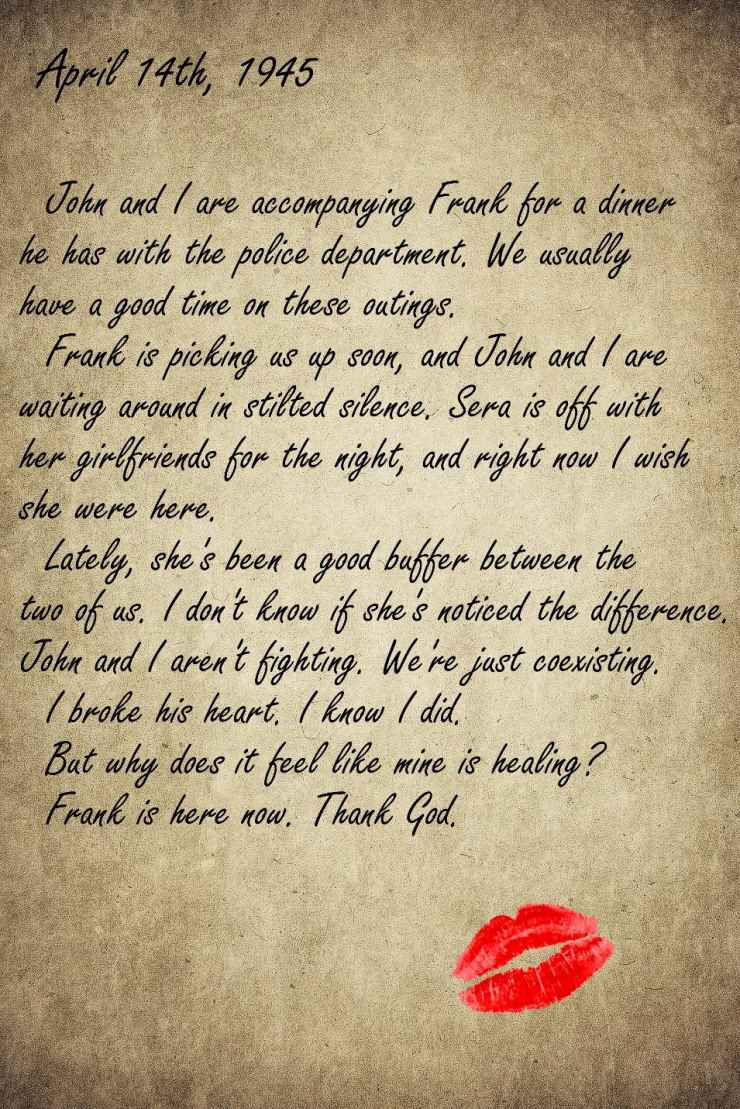 April 14th, 1945
John and I are accompanying Frank for a dinner
he has with the police department. We usually
have a good time on these outings.
Frank is picking us up soon, and John and I are
waiting around in stilted silence. Sera is off with
her girlfriends for the night, and right now I wish
she were here.
Lately, she's been a good buffer between the
two of us. I don't know if she's noticed the difference.
John and I aren't fighting. We're just coexisting.
I broke his heart. I know I did.
But why does it feel like mine is healing?
Frank is here now. Thank God.